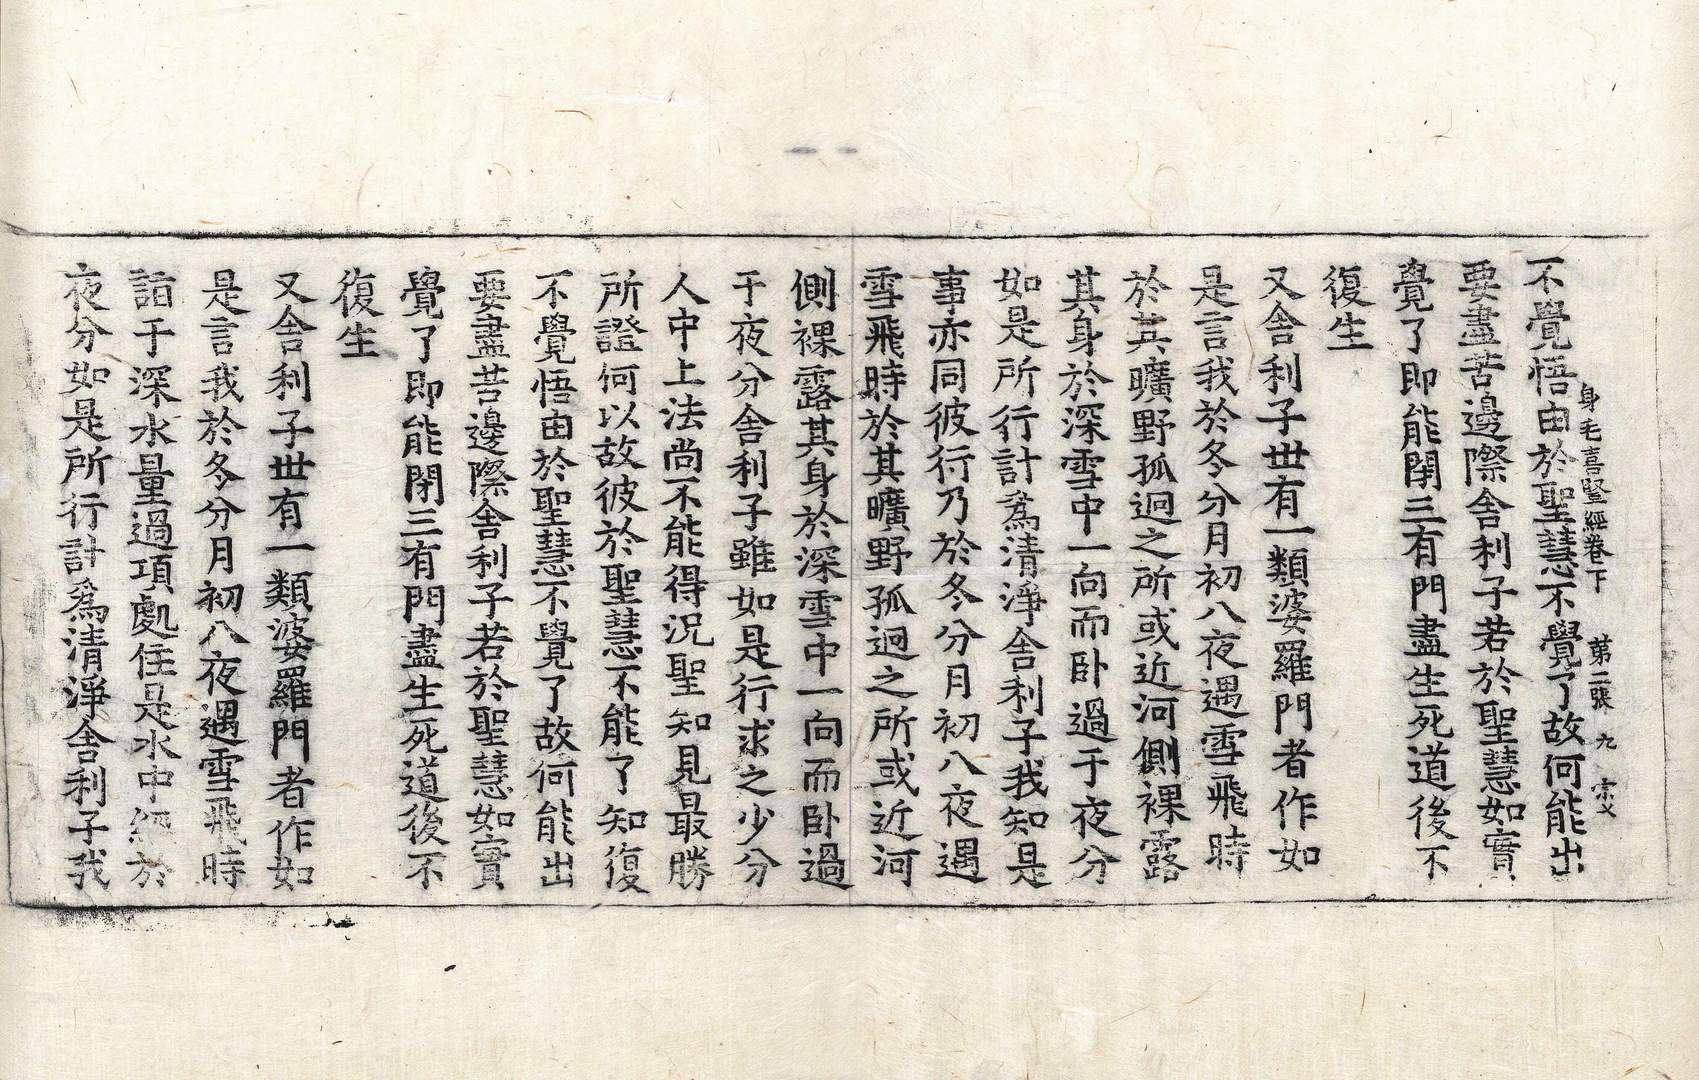 身毛喜竪經卷下　第二張　九　宗父
不覺悟由於聖慧不覺了故何能出
要盡苦邊際舍利子若於聖慧如實
覺了即能閉三有門盡生死道後不
復生
又舍利子世有一類婆羅門者作如
是言我於冬分月初八夜遇雪飛時
於其曠野孤迥之所或近河側裸露
其身於深雪中一向而卧過于夜分
如是所行計爲清淨舍利子我知是
事亦同彼行乃於冬分月初八夜遇
雪飛時於其曠野孤迥之所或近河
側裸露其身於深雪中一向而卧過
于夜分舍利子雖如是行求之少分
人中上法尚不能得況聖知見最勝
所證何以故彼於聖慧不能了知復
不覺悟由於聖慧不覺了故何能出
要盡苦邊際舍利子若於聖慧如實
覺了即能閉三有門盡生死道後不
復生
又舍利子世有一類婆羅門者作如
是言我於冬分月初八夜遇雪飛時
詣于深水量過項處住是水中經於
夜分如是所行計爲清淨舍利子我